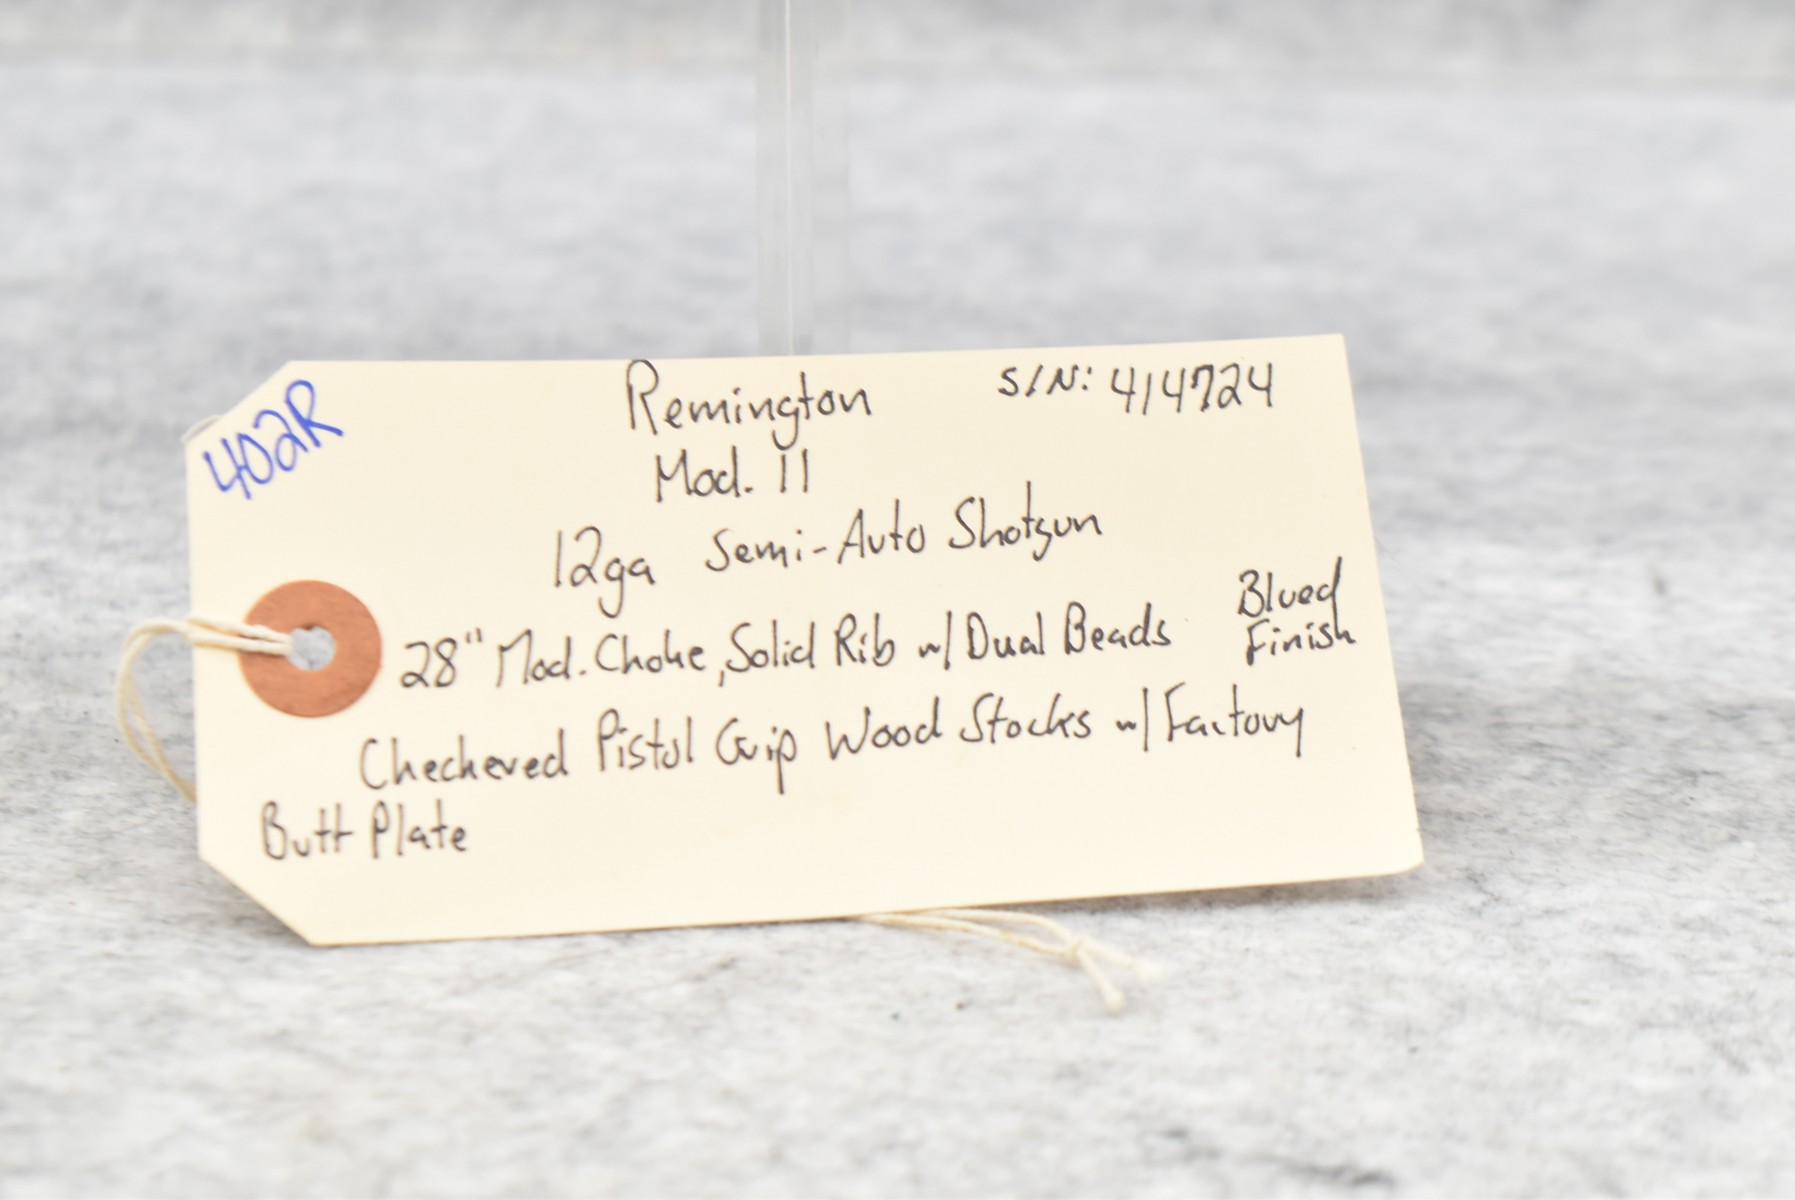 402R
Remington
S/N: 414724
Mod. 11
12ga Semi-Auto Shotgun
28" Mod. Choke, Solid Rib w/ Dual Beads
Blued
Finish
Checkered Pistol Grip Wood Stocks w/ Factory
Butt Plate